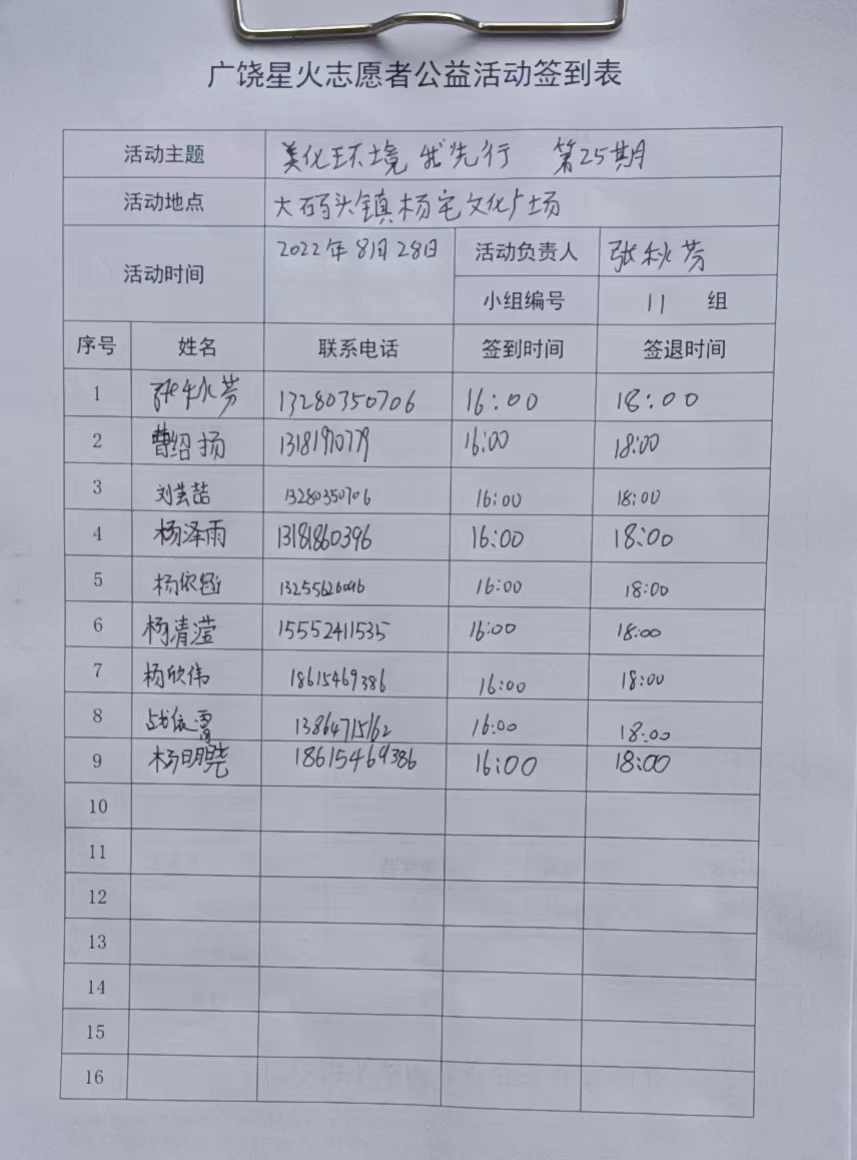 广饶星火志愿者公益活动签到表
活动主题 美化环境 我先行 第25期
活动地点 大码头镇杨宅文化广场
活动时间 2022年8月28日 活动负责人 张秋芳
小组编号 11 组
序号 姓名 联系电话 签到时间 签退时间
1 张秋芳 13280350706 16:00 18:00
2 曹绍扬 13181970779 16:00 18:00
3 刘芸喆 13280350706 16:00 18:00
4 杨泽雨 13181860396 16:00 18:00
5 杨依涵 16:00 18:00
6 杨清滢 15552411535 16:00 18:00
7 杨欣伟 18615469386 16:00 18:00
8 13864715162 16:00 18:00
9 杨明晓 18615469386 16:00 18:00
10
11
12
13
14
15
16